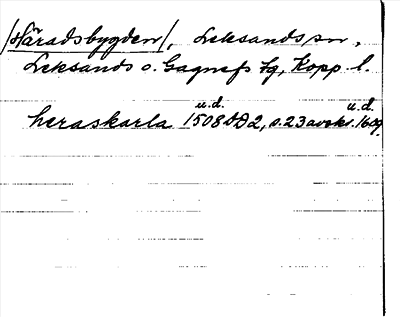 /Häradsbygden/, Leksands sn,
Leksands o. Gagnefs tg, Kopp. l.
u.d. u.d.
heraskarla 1508 DD2, s. 23 avskr. 1609.